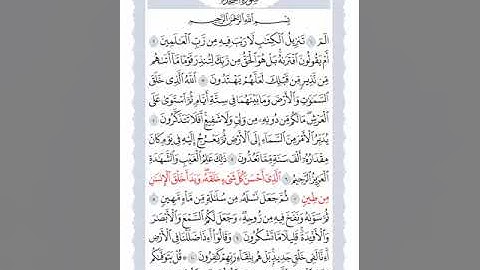 سورة السجدة
بِسْمِ اللَّهِ الرَّحْمَٰنِ الرَّحِيمِ
الٓمٓ ١ تَنزِيلُ الْكِتَٰبِ لَا رَيْبَ فِيهِ مِن رَّبِّ الْعَٰلَمِينَ ٢
أَمْ يَقُولُونَ افْتَرَىٰهُ بَلْ هُوَ الْحَقُّ مِن رَّبِّكَ لِتُنذِرَ قَوْمًا مَّا أَتَىٰهُم
مِّن نَّذِيرٍ مِّن قَبْلِكَ لَعَلَّهُمْ يَهْتَدُونَ ٣ اللَّهُ الَّذِى خَلَقَ
السَّمَٰوَٰتِ وَالْأَرْضَ وَمَا بَيْنَهُمَا فِى سِتَّةِ أَيَّامٍ ثُمَّ اسْتَوَىٰ عَلَى
الْعَرْشِ مَا لَكُم مِّن دُونِهِ مِن وَلِىٍّ وَلَا شَفِيعٍ أَفَلَا تَتَذَكَّرُونَ ٤
يُدَبِّرُ الْأَمْرَ مِنَ السَّمَاءِ إِلَى الْأَرْضِ ثُمَّ يَعْرُجُ إِلَيْهِ فِى يَوْمٍ كَانَ
مِقْدَارُهُ أَلْفَ سَنَةٍ مِّمَّا تَعُدُّونَ ٥ ذَٰلِكَ عَٰلِمُ الْغَيْبِ وَالشَّهَٰدَةِ
الْعَزِيزُ الرَّحِيمُ ٦ الَّذِى أَحْسَنَ كُلَّ شَىْءٍ خَلَقَهُ وَبَدَأَ خَلْقَ الْإِنسَٰنِ
مِن طِينٍ ٧ ثُمَّ جَعَلَ نَسْلَهُ مِن سُلَٰلَةٍ مِّن مَّاءٍ مَّهِينٍ ٨
ثُمَّ سَوَّىٰهُ وَنَفَخَ فِيهِ مِن رُّوحِهِ وَجَعَلَ لَكُمُ السَّمْعَ وَالْأَبْصَٰرَ
وَالْأَفْـِٔدَةَ قَلِيلًا مَّا تَشْكُرُونَ ٩ وَقَالُوا أَءِذَا ضَلَلْنَا فِى الْأَرْضِ
أَءِنَّا لَفِى خَلْقٍ جَدِيدٍ بَلْ هُم بِلِقَاءِ رَبِّهِمْ كَٰفِرُونَ ١٠ قُلْ يَتَوَفَّىٰكُم